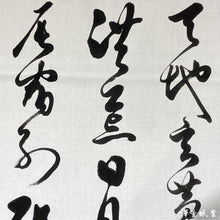 天地玄黄
洪荒日月
辰宿列张